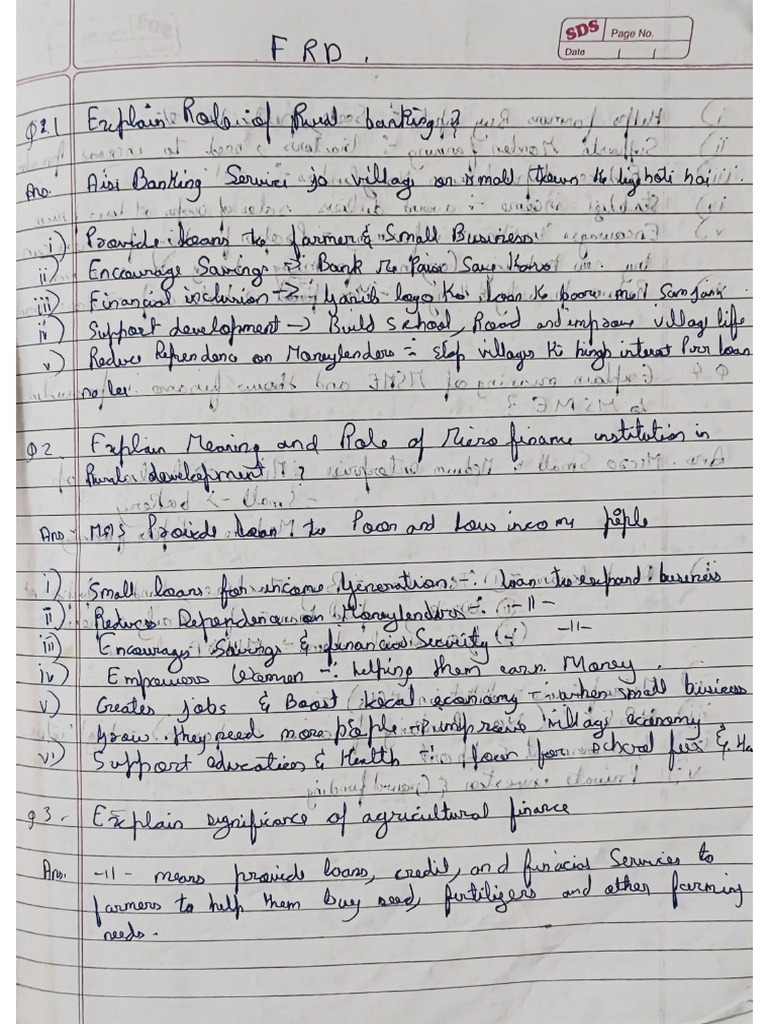 FRD.
SDS Page No.
Date
Q1 Explain Role of Rural banking?
Ans. Aisi Banking Service jo village or small town k liye hoti hai.
i) Provide loans to farmer & Small Business
ii) Encourage Savings → Bank me Paisa Save Karo
iii) Financial inclusion → logo ko loan mil
iv) Support development → Build School, Road and improve village life
v) Reduce Dependence on Moneylenders :- village ki high interest loan
Q2. Explain Meaning and Role of Microfinance institution in
Rural development?
Ans:- MFIs Provide loan to Poor and Low income people
i) Small loans for income Generation :- loan to expand business
ii) Reduces Dependence on Moneylenders :- -11-
iii) Encourage Savings & financial Security :- -11-
iv) Empowers Women -: helping them earn Money.
v) Creates jobs & Boost local economy - when small business
Grow they need more people → improve village economy
vi) Support education & Health -: loan for School fees &
Q3. Explain significance of agricultural finance
Ans. -11- means provide loans, credit, and funacial Services to
farmers to help them buy seed, fertilizers and other farming
needs.